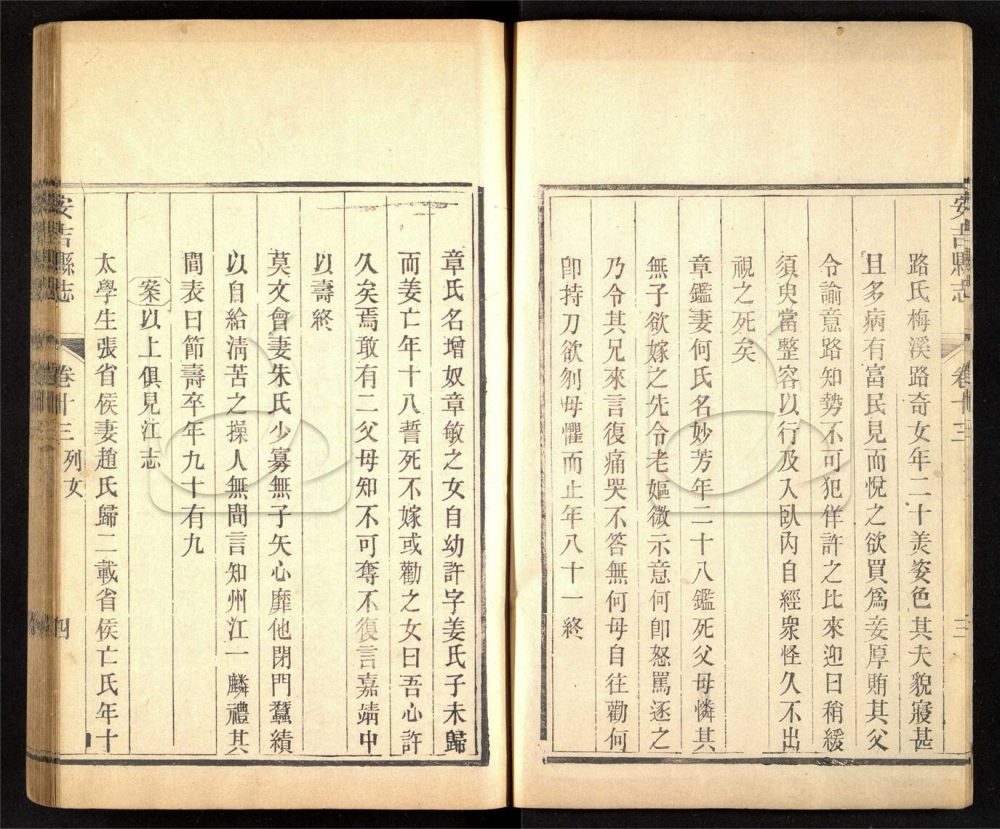 安吉縣志
卷十三
三
路氏梅溪路奇女年二十美姿色其夫貌寢甚
且多病有富民見而悅之欲買爲妾厚賄其父
令諭意路知勢不可犯佯許之比來迎曰稍緩
須臾當整容以行及入臥內自經衆怪久不出
視之死矣
章鑑妻何氏名妙芳年二十八鑑死父母憐其
無子欲嫁之先令老嫗微示意何卽怒罵逐之
乃令其兄來言復痛哭不答無何母自往勸何
卽持刀欲刎母懼而止年八十一終
章氏名增奴章敏之女自幼許字姜氏子未歸
而姜亡年十八誓死不嫁或勸之女曰吾心許
久矣焉敢有二父母知不可奪不復言嘉靖中
以壽終
莫文會妻朱氏少寡無子矢心靡他閉門蠶績
以自給淸苦之操人無間言知州江一麟禮其
閭表曰節壽卒年九十有九
案以上俱見江志
太學生張省侯妻趙氏歸二載省侯亡氏年十
安吉縣志
卷十三
列女
四